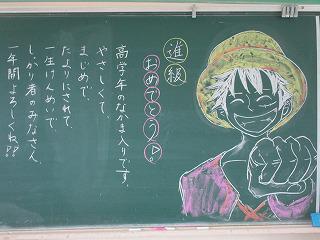 進級
おめでとう!!
高学年のなかま入りです。
やさしくて、
まじめで、
たよりにされて、
一生けんめいで、
しっかり者のみなさん、
一年間よろしくね!!